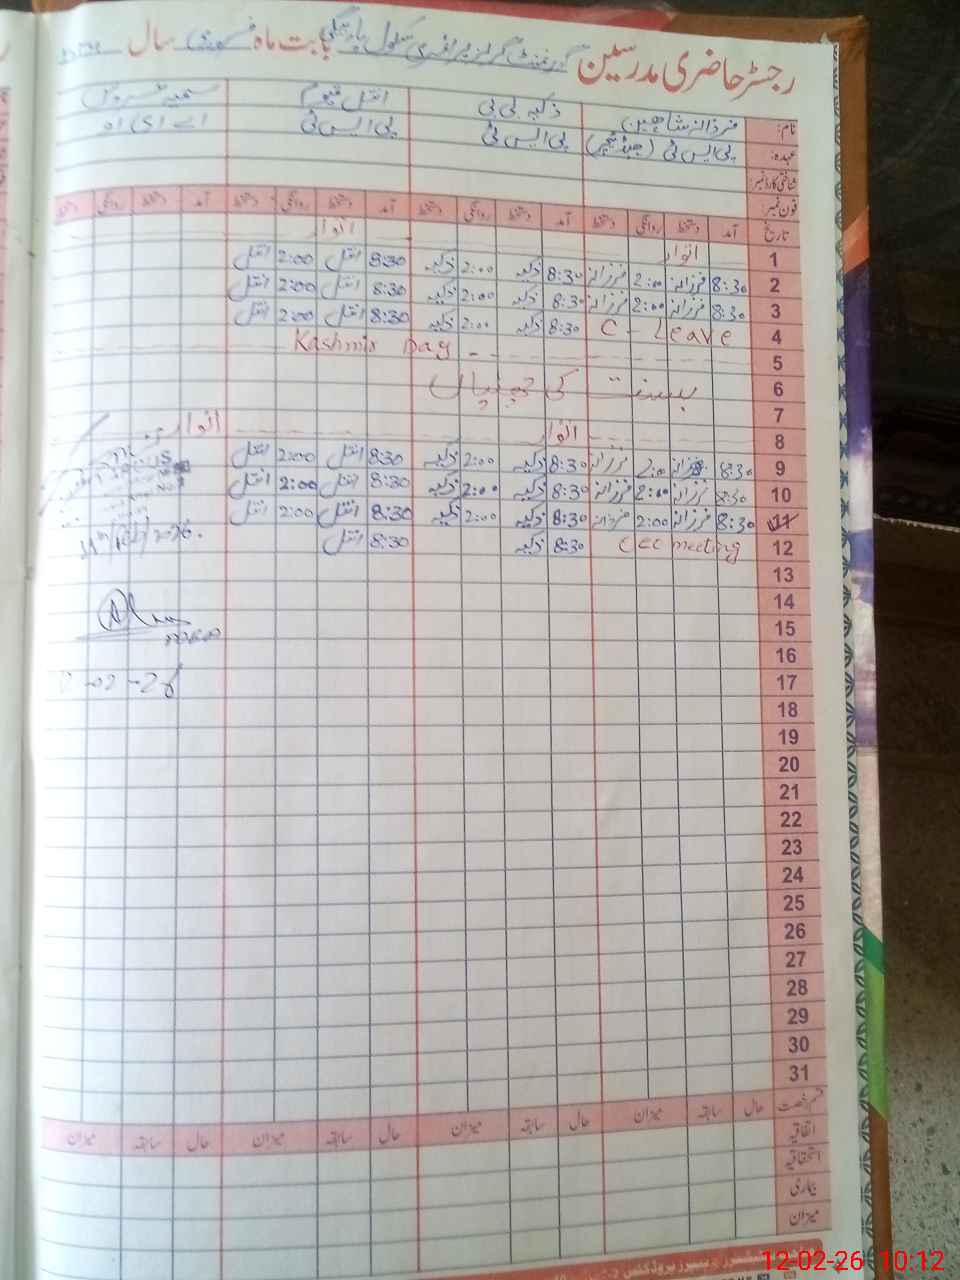 رجسٹر حاضری مدرسین گورنمنٹ گرلز پرائمری سکول بابت ماہ فروری سال
نام: فرزانہ شاہین ذکیہ بی بی
عہدہ: پی ایس ٹی (ہیڈ ٹیچر) پی ایس ٹی پی ایس ٹی اے ای او
شناختی کارڈ نمبر:
فون نمبر:
تاریخ آمد دستخط روانگی دستخط آمد دستخط روانگی دستخط آمد دستخط روانگی دستخط آمد دستخط روانگی دستخط
1 اتوار اتوار
2 8:30 فرزانہ 2:00 فرزانہ 8:30 ذکیہ 2:00 ذکیہ 8:30 2:00
3 8:30 فرزانہ 2:00 فرزانہ 8:30 ذکیہ 2:00 ذکیہ 8:30 2:00
4 C - Leave 8:30 ذکیہ 2:00 ذکیہ 8:30 2:00
5 Kashmir Day
6 بسنت کی چھٹیاں
7
8 اتوار اتوار
9 8:30 فرزانہ 2:00 فرزانہ 8:30 ذکیہ 2:00 ذکیہ 8:30 2:00
10 8:30 فرزانہ 2:00 فرزانہ 8:30 ذکیہ 2:00 ذکیہ 8:30 2:00
11 8:30 فرزانہ 2:00 فرزانہ 8:30 ذکیہ 2:00 ذکیہ 8:30 2:00
12 meeting 8:30 ذکیہ 8:30
13
14
15
16
17
18
19
20
21
22
23
24
25
26
27
28
29
30
31
قسم رخصت حال سابقہ میزان حال سابقہ میزان حال سابقہ میزان حال سابقہ میزان
اتفاقیہ
استحقاقیہ
بیماری
میزان
12-02-26 10:12